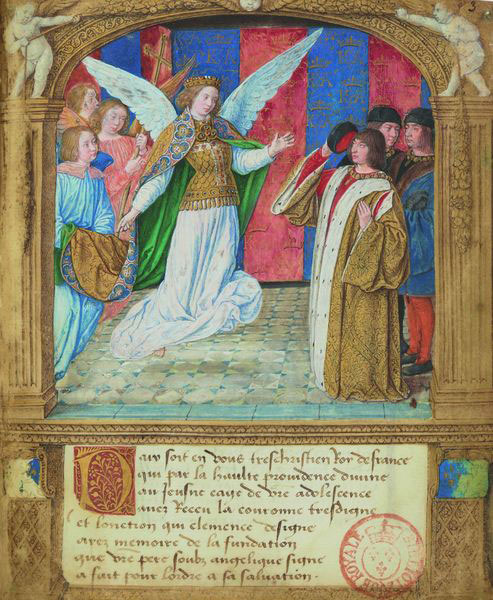 3
Paix soit en vous treschristien Roy de france
qui par la haulte providence divine
au jeusne eage de vre adolescence
avez Receu la couronne tresdigne
et lonction que clemence designe
aiez memoire de la fundation
que vre pere soubz angelique signe
a fait pour lordre a sa salvation .
ROYALE